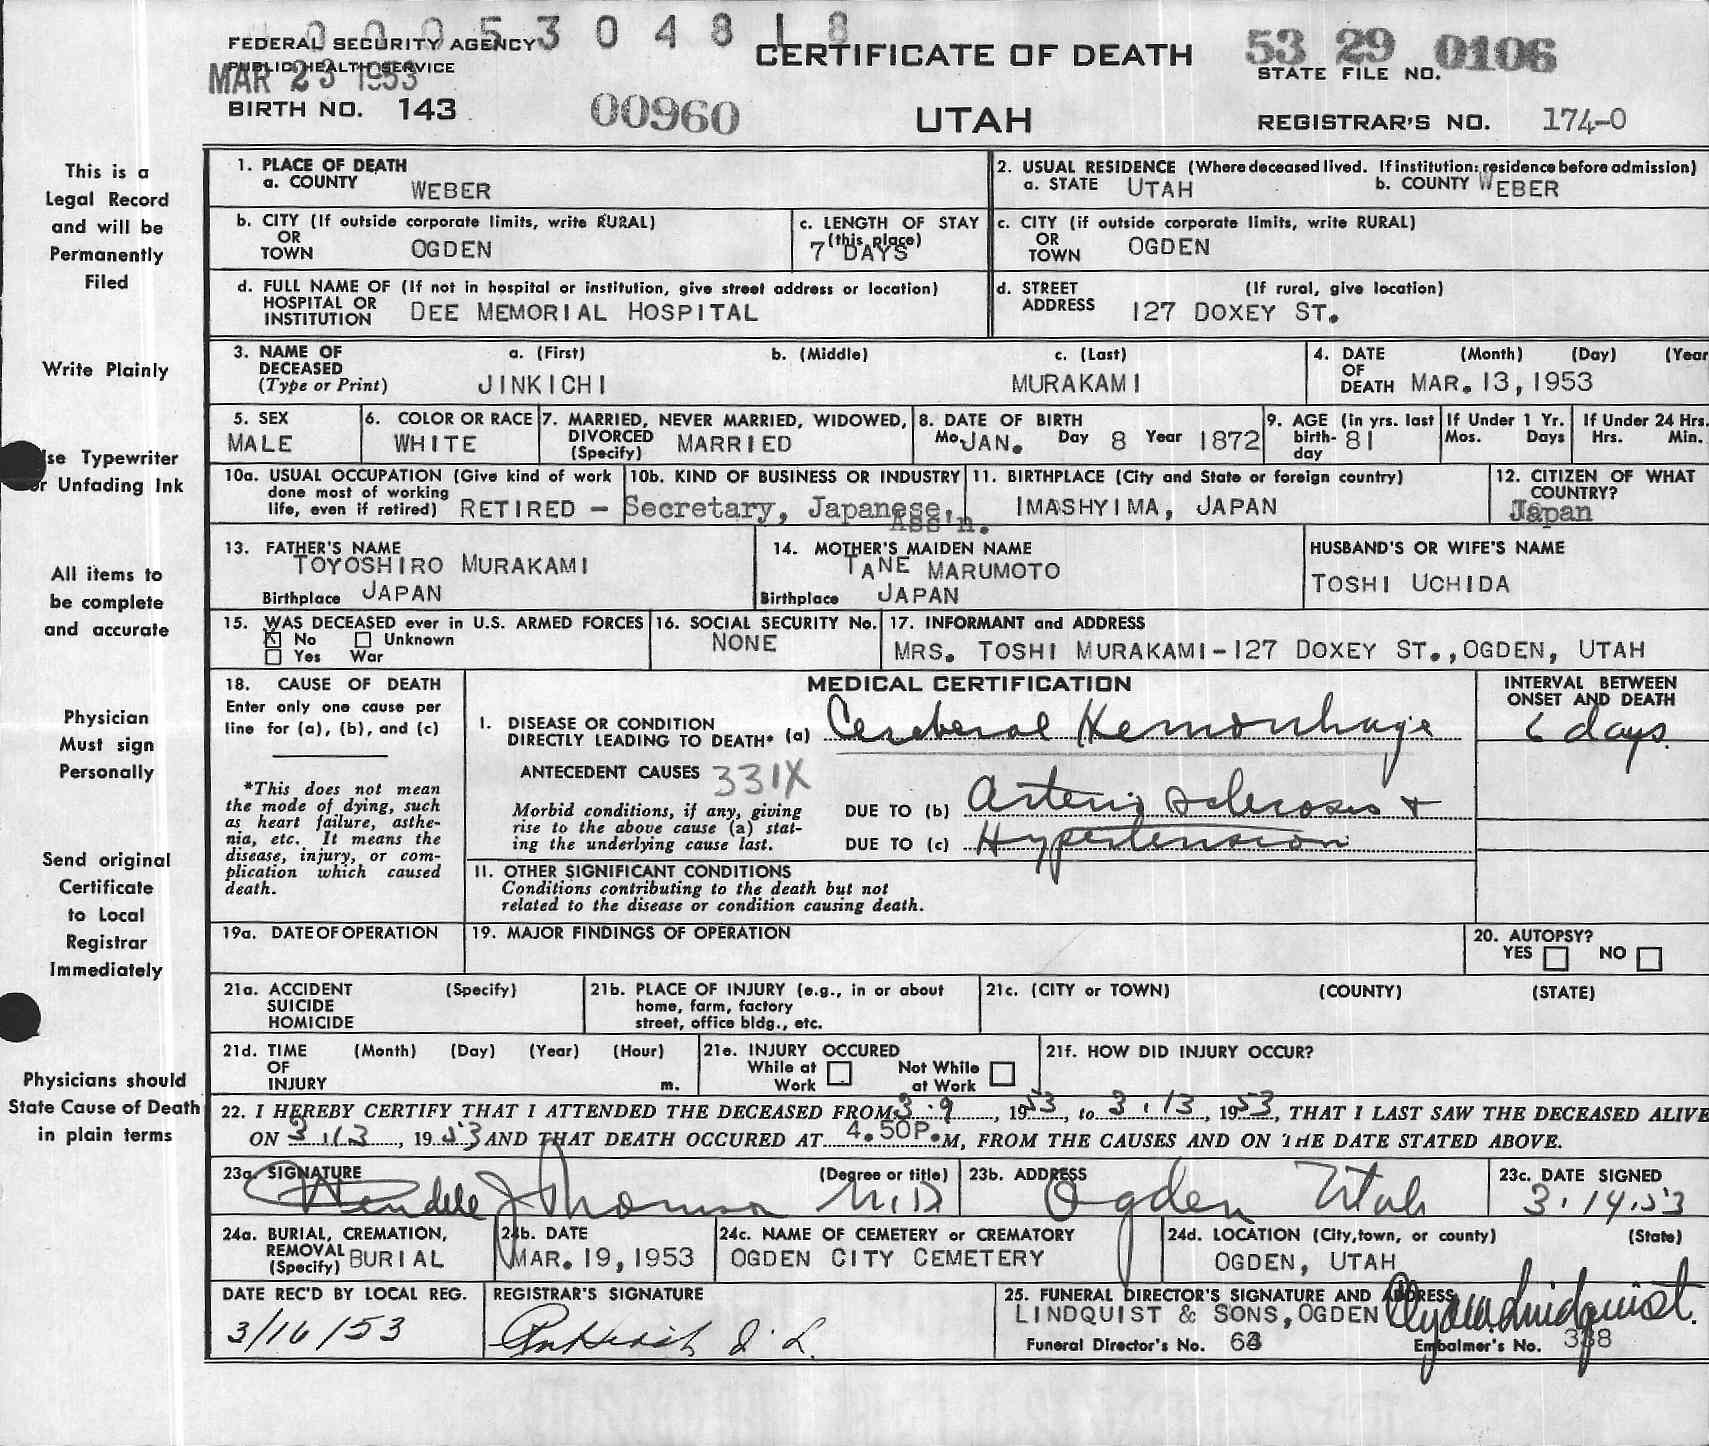 0005304818
FEDERAL SECURITY AGENCY
PUBLIC HEALTH SERVICE
MAR 23 1953
BIRTH NO. 143
00960
CERTIFICATE OF DEATH
UTAH
53 29 0106
STATE FILE NO.
REGISTRAR'S NO. 174-0
This is a
Legal Record
and will be
Permanently
Filed
Write Plainly
se Typewriter
or Unfading Ink
All items to
be complete
and accurate
Physician
Must sign
Personally
Send original
Certificate
to Local
Registrar
Immediately
Physicians should
State Cause of Death
in plain terms
1. PLACE OF DEATH
a. COUNTY WEBER
2. USUAL RESIDENCE (Where deceased lived. If institution: residence before admission)
a. STATE UTAH b. COUNTY WEBER
b. CITY (If outside corporate limits, write RURAL)
OR
TOWN OGDEN
c. LENGTH OF STAY
(this place)
7 DAYS
c. CITY (if outside corporate limits, write RURAL)
OR
TOWN OGDEN
d. FULL NAME OF (If not in hospital or institution, give street address or location)
HOSPITAL OR
INSTITUTION DEE MEMORIAL HOSPITAL
d. STREET (If rural, give location)
ADDRESS 127 DOXEY ST.
3. NAME OF DECEASED
(Type or Print)
a. (First) b. (Middle) c. (Last)
JINKICHI MURAKAMI
4. DATE OF DEATH (Month) (Day) (Year
MAR. 13, 1953
5. SEX
MALE
6. COLOR OR RACE
WHITE
7. MARRIED, NEVER MARRIED, WIDOWED,
DIVORCED
(Specify) MARRIED
8. DATE OF BIRTH
Mo. JAN. Day 8 Year 1872
9. AGE (in yrs. last
birth-
day 81
If Under 1 Yr.
Mos. Days
If Under 24 Hrs.
Hrs. Min.
10a. USUAL OCCUPATION (Give kind of work
done most of working
life, even if retired) RETIRED -
10b. KIND OF BUSINESS OR INDUSTRY
Secretary, Japanese,
Ass'n.
11. BIRTHPLACE (City and State or foreign country)
IMASHYIMA, JAPAN
12. CITIZEN OF WHAT
COUNTRY?
Japan
13. FATHER'S NAME
TOYOSHIRO MURAKAMI
Birthplace JAPAN
14. MOTHER'S MAIDEN NAME
TANE MARUMOTO
Birthplace JAPAN
HUSBAND'S OR WIFE'S NAME
TOSHI UCHIDA
15. WAS DECEASED ever in U.S. ARMED FORCES
No Unknown
Yes War
16. SOCIAL SECURITY No.
NONE
17. INFORMANT and ADDRESS
MRS. TOSHI MURAKAMI-127 DOXEY ST., OGDEN, UTAH
18. CAUSE OF DEATH
Enter only one cause per
line for (a), (b), and (c)
*This does not mean
the mode of dying, such
as heart failure, asthe-
nia, etc. It means the
disease, injury, or com-
plication which caused
death.
MEDICAL CERTIFICATION
INTERVAL BETWEEN
ONSET AND DEATH
I. DISEASE OR CONDITION
DIRECTLY LEADING TO DEATH* (a) Cerebral Hemorrhage 6 days
ANTECEDENT CAUSES 331X
Morbid conditions, if any, giving
rise to the above cause (a) stat-
ing the underlying cause last.
DUE TO (b) Arterio sclerosis +
DUE TO (c) Hypertension
II. OTHER SIGNIFICANT CONDITIONS
Conditions contributing to the death but not
related to the disease or condition causing death.
19a. DATE OF OPERATION
19. MAJOR FINDINGS OF OPERATION
20. AUTOPSY?
YES NO
21a. ACCIDENT (Specify)
SUICIDE
HOMICIDE
21b. PLACE OF INJURY (e.g., in or about
home, farm, factory
street, office bldg., etc.
21c. (CITY or TOWN) (COUNTY) (STATE)
21d. TIME (Month) (Day) (Year) (Hour)
OF
INJURY m.
21e. INJURY OCCURED
While at Work Not While at Work
21f. HOW DID INJURY OCCUR?
22. I HEREBY CERTIFY THAT I ATTENDED THE DECEASED FROM 3.9, 1953, to 3.13, 1953, THAT I LAST SAW THE DECEASED ALIVE
ON 3/13, 1953 AND THAT DEATH OCCURED AT 4.50P.M, FROM THE CAUSES AND ON THE DATE STATED ABOVE.
23a. SIGNATURE (Degree or title)
Wendell J Thomson M.D
23b. ADDRESS
Ogden Utah
23c. DATE SIGNED
3.14.53
24a. BURIAL, CREMATION,
REMOVAL
(Specify) BURIAL
24b. DATE
MAR. 19, 1953
24c. NAME OF CEMETERY or CREMATORY
OGDEN CITY CEMETERY
24d. LOCATION (City, town, or county) (State)
OGDEN, UTAH
DATE REC'D BY LOCAL REG.
3/16/53
REGISTRAR'S SIGNATURE
25. FUNERAL DIRECTOR'S SIGNATURE AND ADDRESS
LINDQUIST & SONS, OGDEN Clyde Lindquist.
Funeral Director's No. 63 Embalmer's No. 338